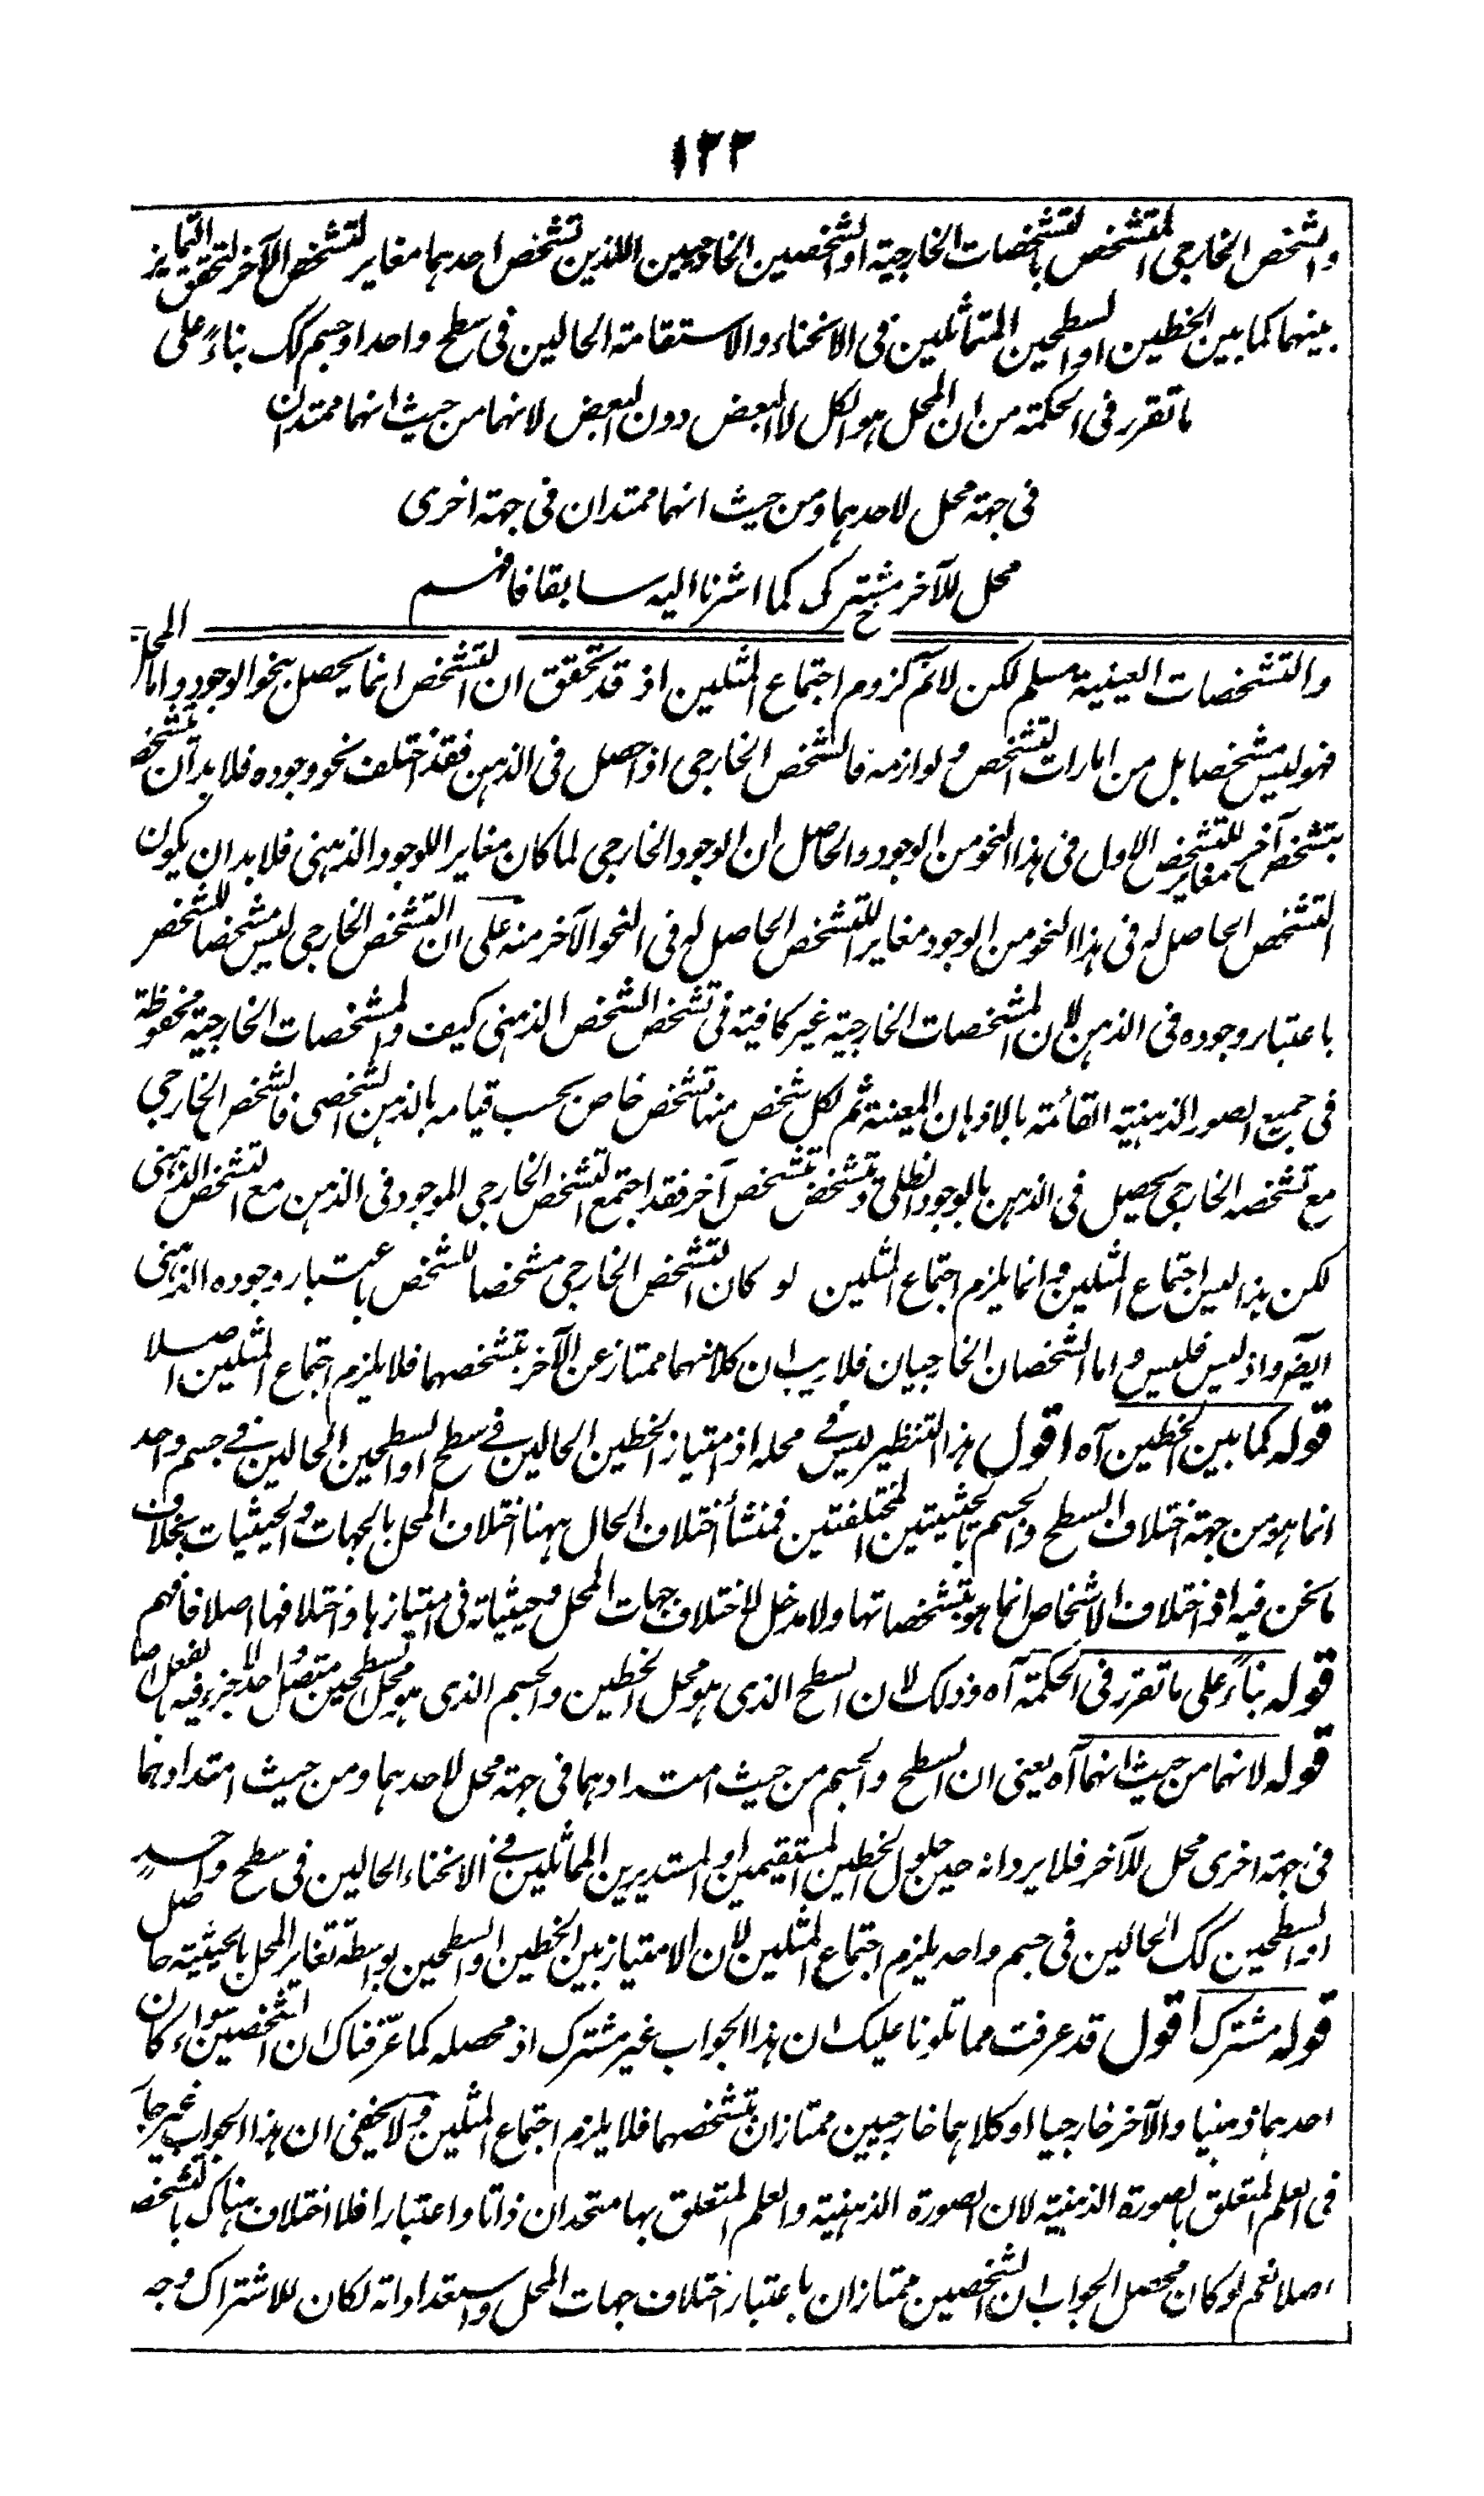 ١٣٣
والشخص الخارجى المتشخص بالتشخصات الخارجية او الشخصين الخارجيين اللذين تشخص احدهما مغاير لتشخص الآخر لتحقق التمايز
بينهما كما بين الخطين او السطحين المتماثلين فى الانحناء والاستقامة الحالين فى سطح واحد او جسم كك بناءً على
ما تقرر فى الحكمة من ان المحل هو الكل لا البعض دون البعض لانهما من حيث انهما ممتدان
فى جهة محل لاحدهما ومن حيث انهما ممتدان فى جهة اخرى
محل للآخر مشترك كما اشرنا اليه سابقا فافهم
والتشخصات العينية مسلم لكن لانم لزوم اجتماع المثلين اذ قد تحقق ان التشخص انما يحصل بنحو الوجود واما المحل
فهو ليس مشخصا بل من امارات التشخص ولوازمه فالشخص الخارجى اذا حصل فى الذهن فقد اختلف نحو وجوده فلا بد ان يتشخص
بتشخص آخر مغاير للتشخص الاول فى هذا النحو من الوجود والحاصل ان الوجود الخارجى لما كان مغايرا للوجود الذهنى فلا بد ان يكون
التشخص الحاصل له فى هذا النحو من الوجود مغايرا للتشخص الحاصل له فى النحو الآخر منه على ان التشخص الخارجى ليس مشخصا للشخص
باعتبار وجوده فى الذهن لان المشخصات الخارجية غير كافية فى تشخص الشخص الذهنى كيف والمشخصات الخارجية محفوظة
فى جميع الصور الذهنية القائمة بالاذهان المعينة ثم لكل شخص منها تشخص خاص بحسب قيامه بالذهن الشخصى فالشخص الخارجى
مع تشخصه الخارجى يحصل فى الذهن بالوجود الظلى وتشخص بتشخص آخر فقد اجتمع التشخص الخارجى الموجود فى الذهن مع التشخص الذهنى
لكن هذا ليس اجتماع المثلين وانما يلزم اجتماع المثلين لو كان التشخص الخارجى مشخصا للشخص باعتبار وجوده الذهنى
ايضا واذ ليس فليس واما الشخصان الخارجيان فلا ريب ان كلا منهما ممتاز عن الآخر بتشخصهما فلا يلزم اجتماع المثلين اصلا
قوله كما بين الخطين آه اقول هذا التنظير ليس فى محله اذ امتياز الخطين الحالين فى سطح او السطحين الحالين فى جسم واحد
انما هو من جهة اختلاف السطح والجسم بالحيثيتين المختلفتين فمنشأ اختلاف الحال ههنا اختلاف المحل بالجهات والحيثيات بخلاف
ما نحن فيه اذ اختلاف الاشخاص انما هو بتشخصاتها ولا مدخل لاختلاف جهات المحل وحيثياته فى امتيازها واختلافها اصلا فافهم
قوله بناءً على ما تقرر فى الحكمة آه وذلك لان السطح الذى هو محل الخطين والجسم الذى هو محل السطحين متصل واحد لا جزء فيه بالفعل اصلا
قوله لانهما من حيث انهما آه يعنى ان السطح والجسم من حيث امتدادهما فى جهة محل لاحدهما ومن حيث امتدادهما
فى جهة اخرى محل للآخر فلا يرد انه حين حلول الخطين المستقيمين او المستديرين المماثلين فى الانحناء الحالين فى سطح واحدٍ
او السطحين كك الحالين فى جسم واحد يلزم اجتماع المثلين لان الامتياز بين الخطين او السطحين بواسطة تغاير المحل بالحيثية حاصل
قوله مشترك اقول قد عرفت مما تلونا عليك ان هذا الجواب غير مشترك اذ محصله كما عرّفناك ان الشخصين سواء كان
احدهما ذهنيا والآخر خارجيا او كلاهما خارجيين ممتازان بتشخصهما فلا يلزم اجتماع المثلين ولا يخفى ان هذا الجواب غير جار
فى العلم المتعلق بالصورة الذهنية لان الصورة الذهنية والعلم المتعلق بها متحدان ذاتا واعتبارا فلا اختلاف هناك بالتشخص
اصلا نعم لو كان محصل الجواب ان الشخصين ممتازان باعتبار اختلاف جهات المحل واستعداداته لكان للاشتراك وجه